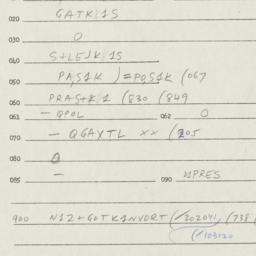 020 GATK1S
030 0
040 S+LEJK1S
050 PAS1K )=PQS1K (067
060 PRAS+K1 (830 (849
061 — QPOL 062 0
070 — QGAYTL xx (205
080 0
085 — 090 UPRES
900 N12+GOTK1NVORT (/202041, (738
(/103120